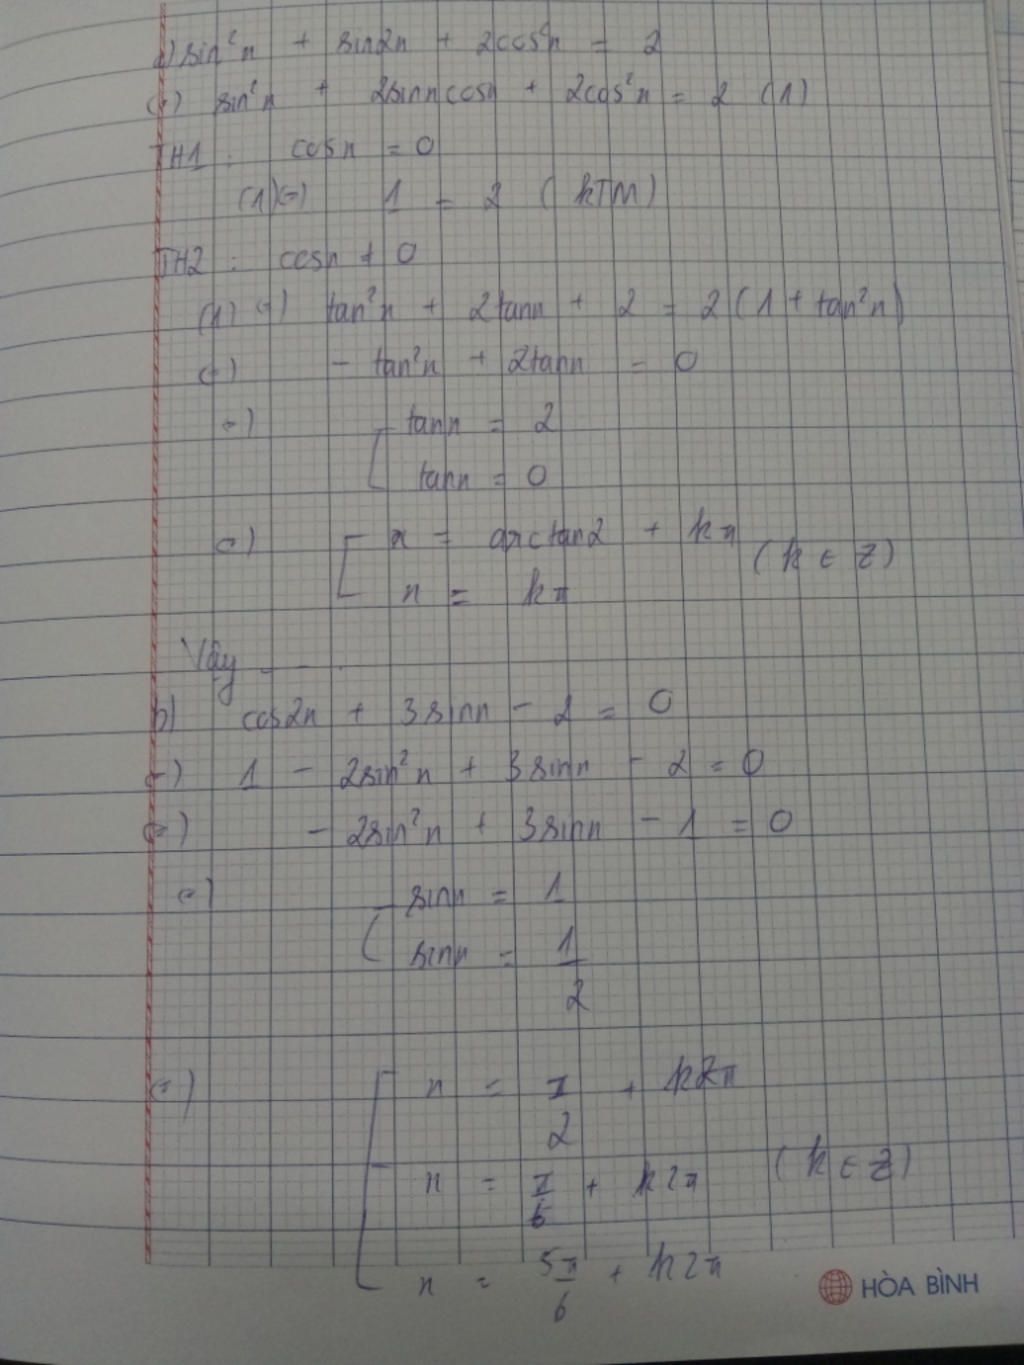 a) sin²x + sin2x + 2cos²x = 2
(=) sin²x + 2sinxcosx + 2cos²x = 2 (1)
TH1 : cosx = 0
(1) (=) 1 = 2 (kTM)
TH2 : cosx ≠ 0
(1) (=) tan²x + 2tanx + 2 = 2(1 + tan²x)
(=) - tan²x + 2tanx = 0
(=) [ tanx = 2
tanx = 0
(=) [ x = arctan2 + kπ
x = kπ (k ∈ Z)
Vậy ....
b) cos2x + 3sinx - 2 = 0
(=) 1 - 2sin²x + 3sinx - 2 = 0
(=) - 2sin²x + 3sinx - 1 = 0
(=) [ sinx = 1
sinx = 1/2
(=) [ x = π/2 + k2π
x = π/6 + k2π (k ∈ Z)
x = 5π/6 + k2π
HÒA BÌNH